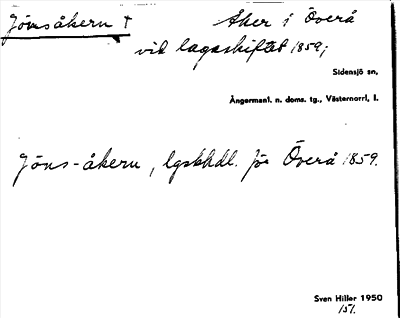 Jönsåkern † Åker i Överå
vid lagaskiftet 1859;
Sidensjö sn,
Ångermanl. n. doms. tg., Västernorrl. l.
Jöns-åkern, lgskhdl. för Överå 1859.
Sven Hiller 1950
151.